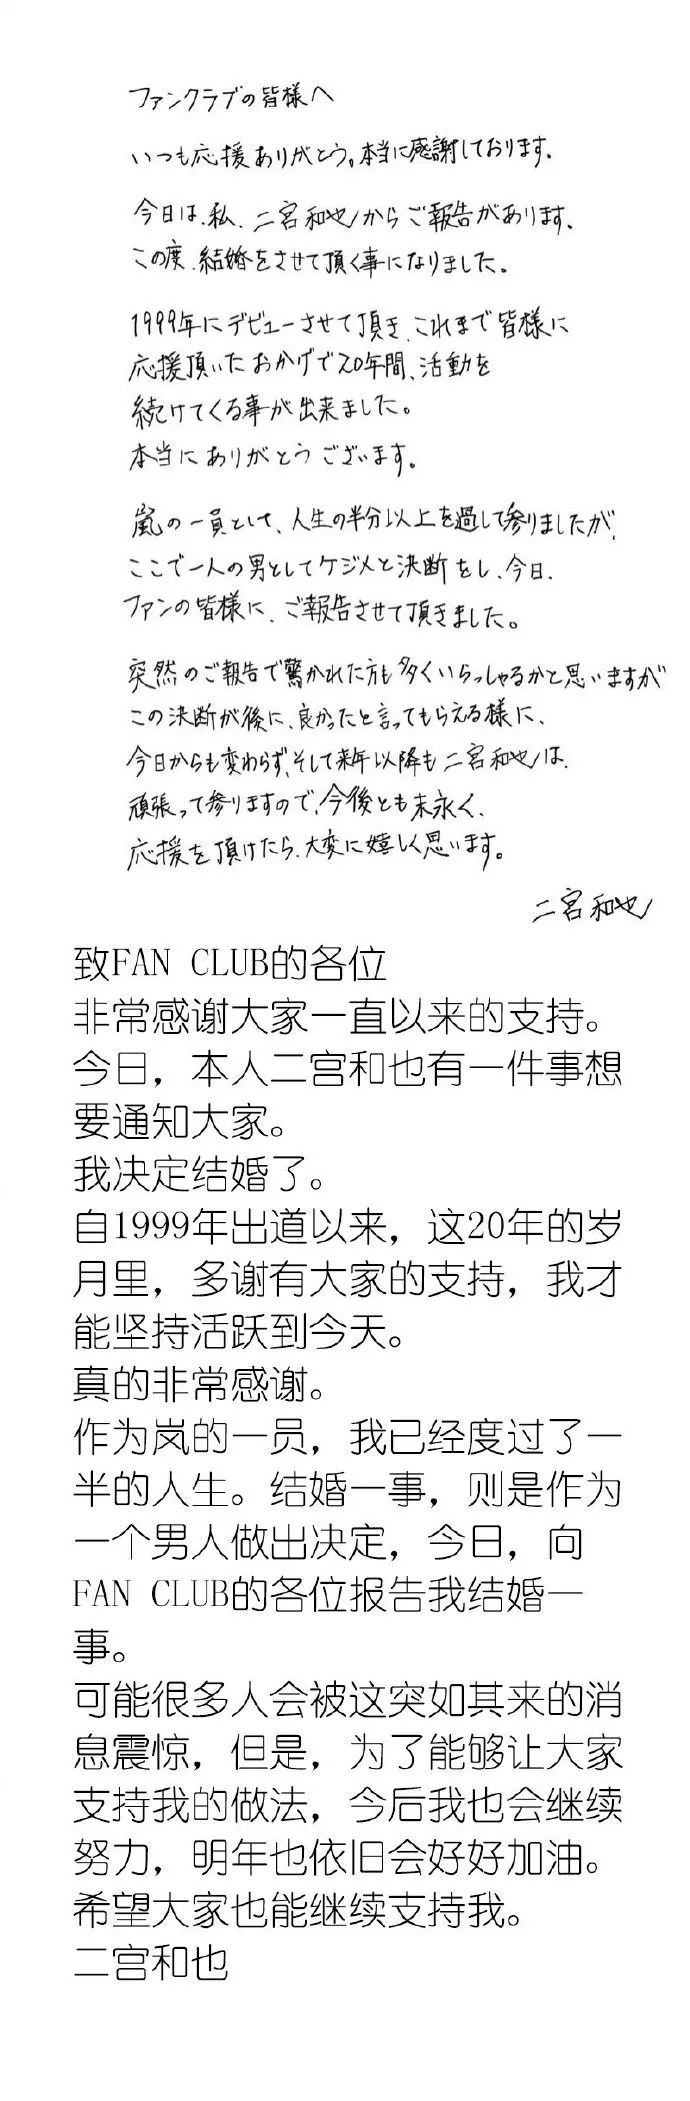 ファンクラブの皆様へ
いつも応援ありがとう。本当に感謝しております。
今日は、私、二宮和也からご報告があります。
この度、結婚をさせて頂く事になりました。
1999年にデビューさせて頂き、これまで皆様に
応援頂いたおかげで20年間、活動を
続けてくる事が出来ました。
本当にありがとうございます。
嵐の一員として、人生の半分以上を過して参りましたが、
ここで一人の男としてケジメと決断をし、今日、
ファンの皆様に、ご報告させて頂きました。
突然のご報告で驚かれた方も多くいらっしゃるかと思いますが
この決断が後に、良かったと言ってもらえる様に、
今日からも変わらず、そして来年以降も二宮和也は、
頑張って参りますので、今後とも末永く、
応援を頂けたら、大変に嬉しく思います。
二宮和也
致FAN CLUB的各位
非常感谢大家一直以来的支持。
今日，本人二宫和也有一件事想
要通知大家。
我决定结婚了。
自1999年出道以来，这20年的岁
月里，多谢有大家的支持，我才
能坚持活跃到今天。
真的非常感谢。
作为岚的一员，我已经度过了一
半的人生。结婚一事，则是作为
一个男人做出决定，今日，向
FAN CLUB的各位报告我结婚一
事。
可能很多人会被这突如其来的消
息震惊，但是，为了能够让大家
支持我的做法，今后我也会继续
努力，明年也依旧会好好加油。
希望大家也能继续支持我。
二宫和也